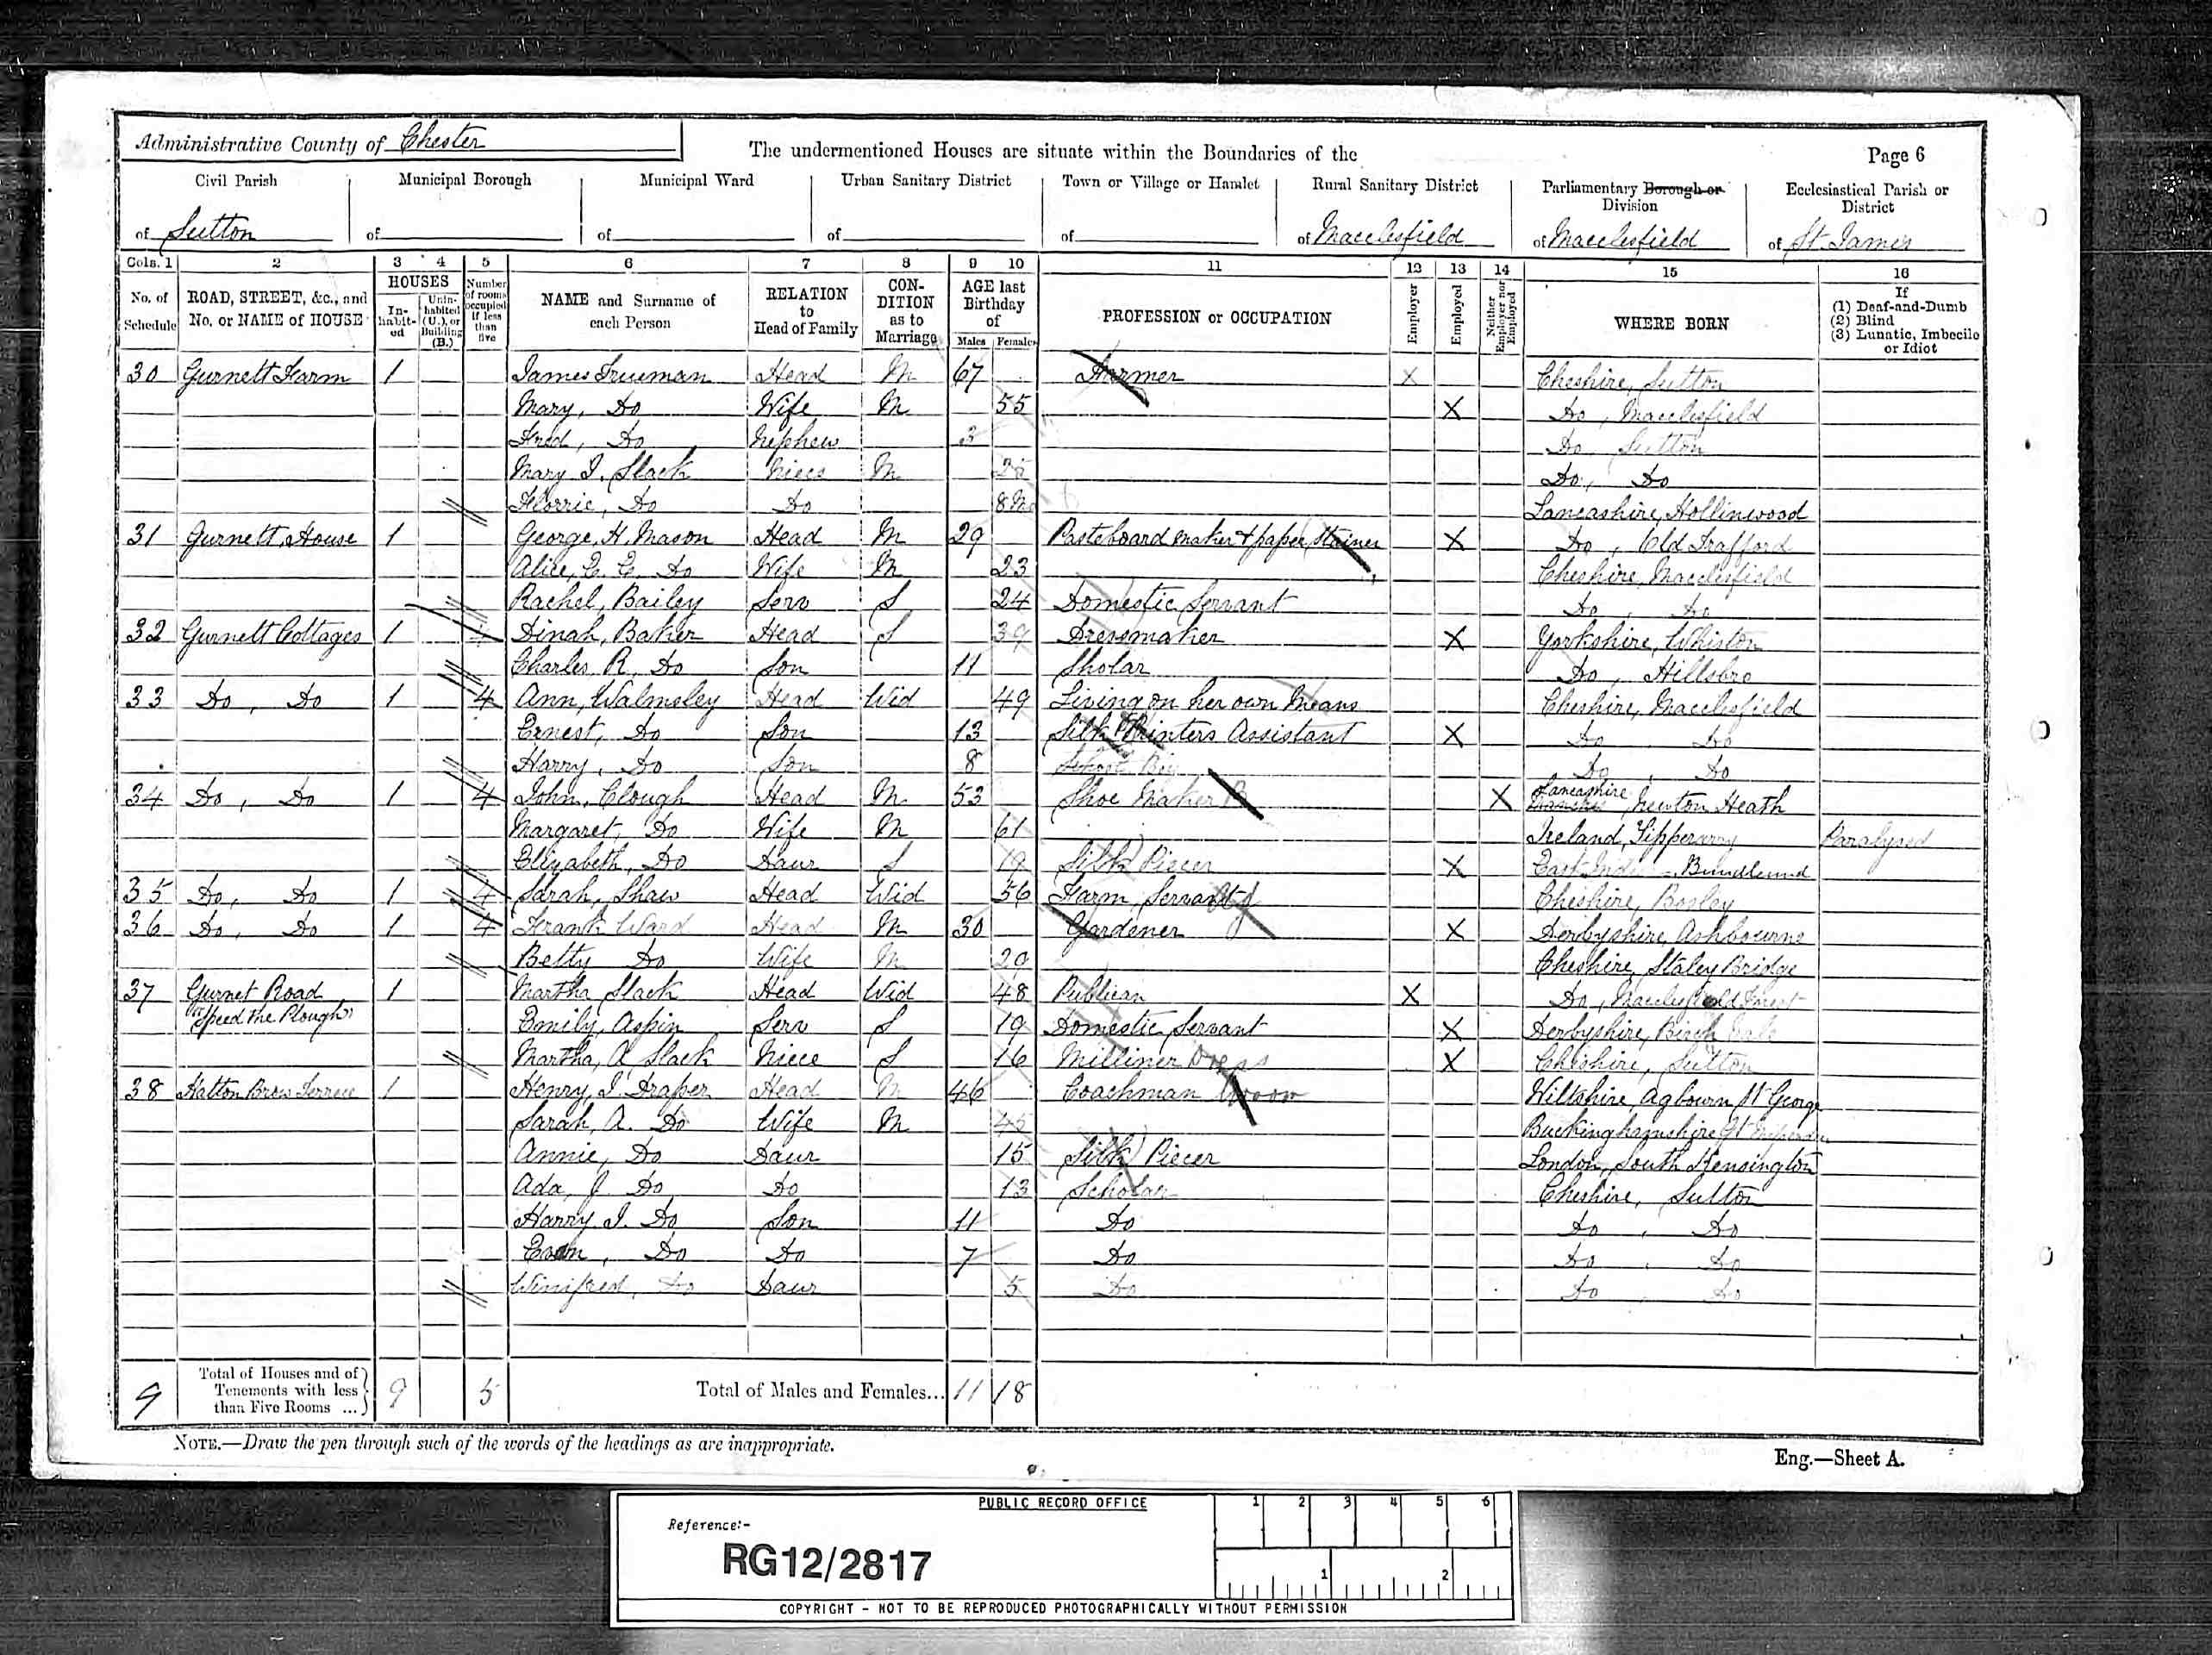 Administrative County of Chester
The undermentioned Houses are situate within the Boundaries of the
Page 6
Civil Parish | Municipal Borough | Municipal Ward | Urban Sanitary District | Town or Village or Hamlet | Rural Sanitary District | Parliamentary Borough or Division | Ecclesiastical Parish or District
of Sutton | of | of | of | of | of Macclesfield | of Macclesfield | of St James
Cols. 1 | 2 | 3 | 4 | 5 | 6 | 7 | 8 | 9 | 10 | 11 | 12 | 13 | 14 | 15 | 16
No. of Schedule | ROAD, STREET, &c., and No. or NAME of HOUSE | HOUSES In-habit-ed | Unin-habited (U.), or Building (B.) | Number of rooms occupied if less than five | NAME and Surname of each Person | RELATION to Head of Family | CON-DITION as to Marriage | AGE last Birthday of Males | Females | PROFESSION or OCCUPATION | Employer | Employed | Neither Employer nor Employed | WHERE BORN | If (1) Deaf-and-Dumb (2) Blind (3) Lunatic, Imbecile or Idiot
30 Gurnett Farm 1 James Trueman Head M 67 Farmer X Cheshire, Sutton
Mary, Do Wife M 55 X Do, Macclesfield
Fred, Do Nephew 3 Do Sutton
Mary I. Slack Niece M Do, Do
Florrie, Do Do 8 Mo Lancashire, Hollinwood
31 Gurnett House 1 George, H. Mason Head M 29 Pasteboard maker & paper Stainer X Do, Old Trafford
Alice, E. E. Do Wife M 23 Cheshire, Macclesfield
Rachel, Bailey Serv S 24 Domestic Servant Do, Do
32 Gurnett Cottages 1 Dinah, Baker Head S 39 Dressmaker X Yorkshire, Whiston
Charles R. Do Son 11 Sholar Do, Hillsbro
33 Do, Do 1 4 Ann, Walmsley Head Wid 49 Living on her own Means Cheshire, Macclesfield
Ernest, Do Son 13 Silk Printers Assistant X Do Do
Harry, Do Son 8 School Boy Do, Do
34 Do, Do 1 4 John, Clough Head M 53 Shoe Maker X Lancashire, Newton Heath
Margaret, Do Wife M 61 Ireland, Tipperary Paralysed
Elizabeth, Do Daur S 19 Silk Piecer X East
35 Do, Do 1 4 Sarah, Shaw Head Wid 56 Farm Servant Cheshire, Bosley
36 Do, Do 1 4 Frank Ward Head M 30 Gardener X Derbyshire, Ashbourne
Betty Do Wife M 29 Cheshire, Staley Bridge
37 Gurnet Road 1 Martha Slack Head Wid 48 Publican X Do, Macclesfield Forest
"Speed the Plough" Emily, Aspin Serv S 19 Domestic Servant X Derbyshire, Birch
Martha, A Slack Niece S 16 Milliner Dress X Cheshire, Sutton
38 Hatton Brow Terrace 1 Henry, I. Draper Head M 46 Coachman Groom Wiltshire, Agbourn St George
Sarah, A. Do Wife M 45 Buckinghamshire Gt
Annie, Do Daur 15 Silk Piecer London, South Kensington
Ada, J Do Do 13 Scholar Cheshire, Sutton
Harry I. Do Son 11 Do Do, Do
Do Do 7 Do Do, Do
Winifred, Do Daur 5 Do Do, Do
9 Total of Houses and of Tenements with less than Five Rooms ... 9 5 Total of Males and Females... 11 18
NOTE.—Draw the pen through such of the words of the headings as are inappropriate.
Eng.—Sheet A.
PUBLIC RECORD OFFICE
1 2 3 4 5 6
Reference:-
RG12/2817
1 2
COPYRIGHT - NOT TO BE REPRODUCED PHOTOGRAPHICALLY WITHOUT PERMISSION